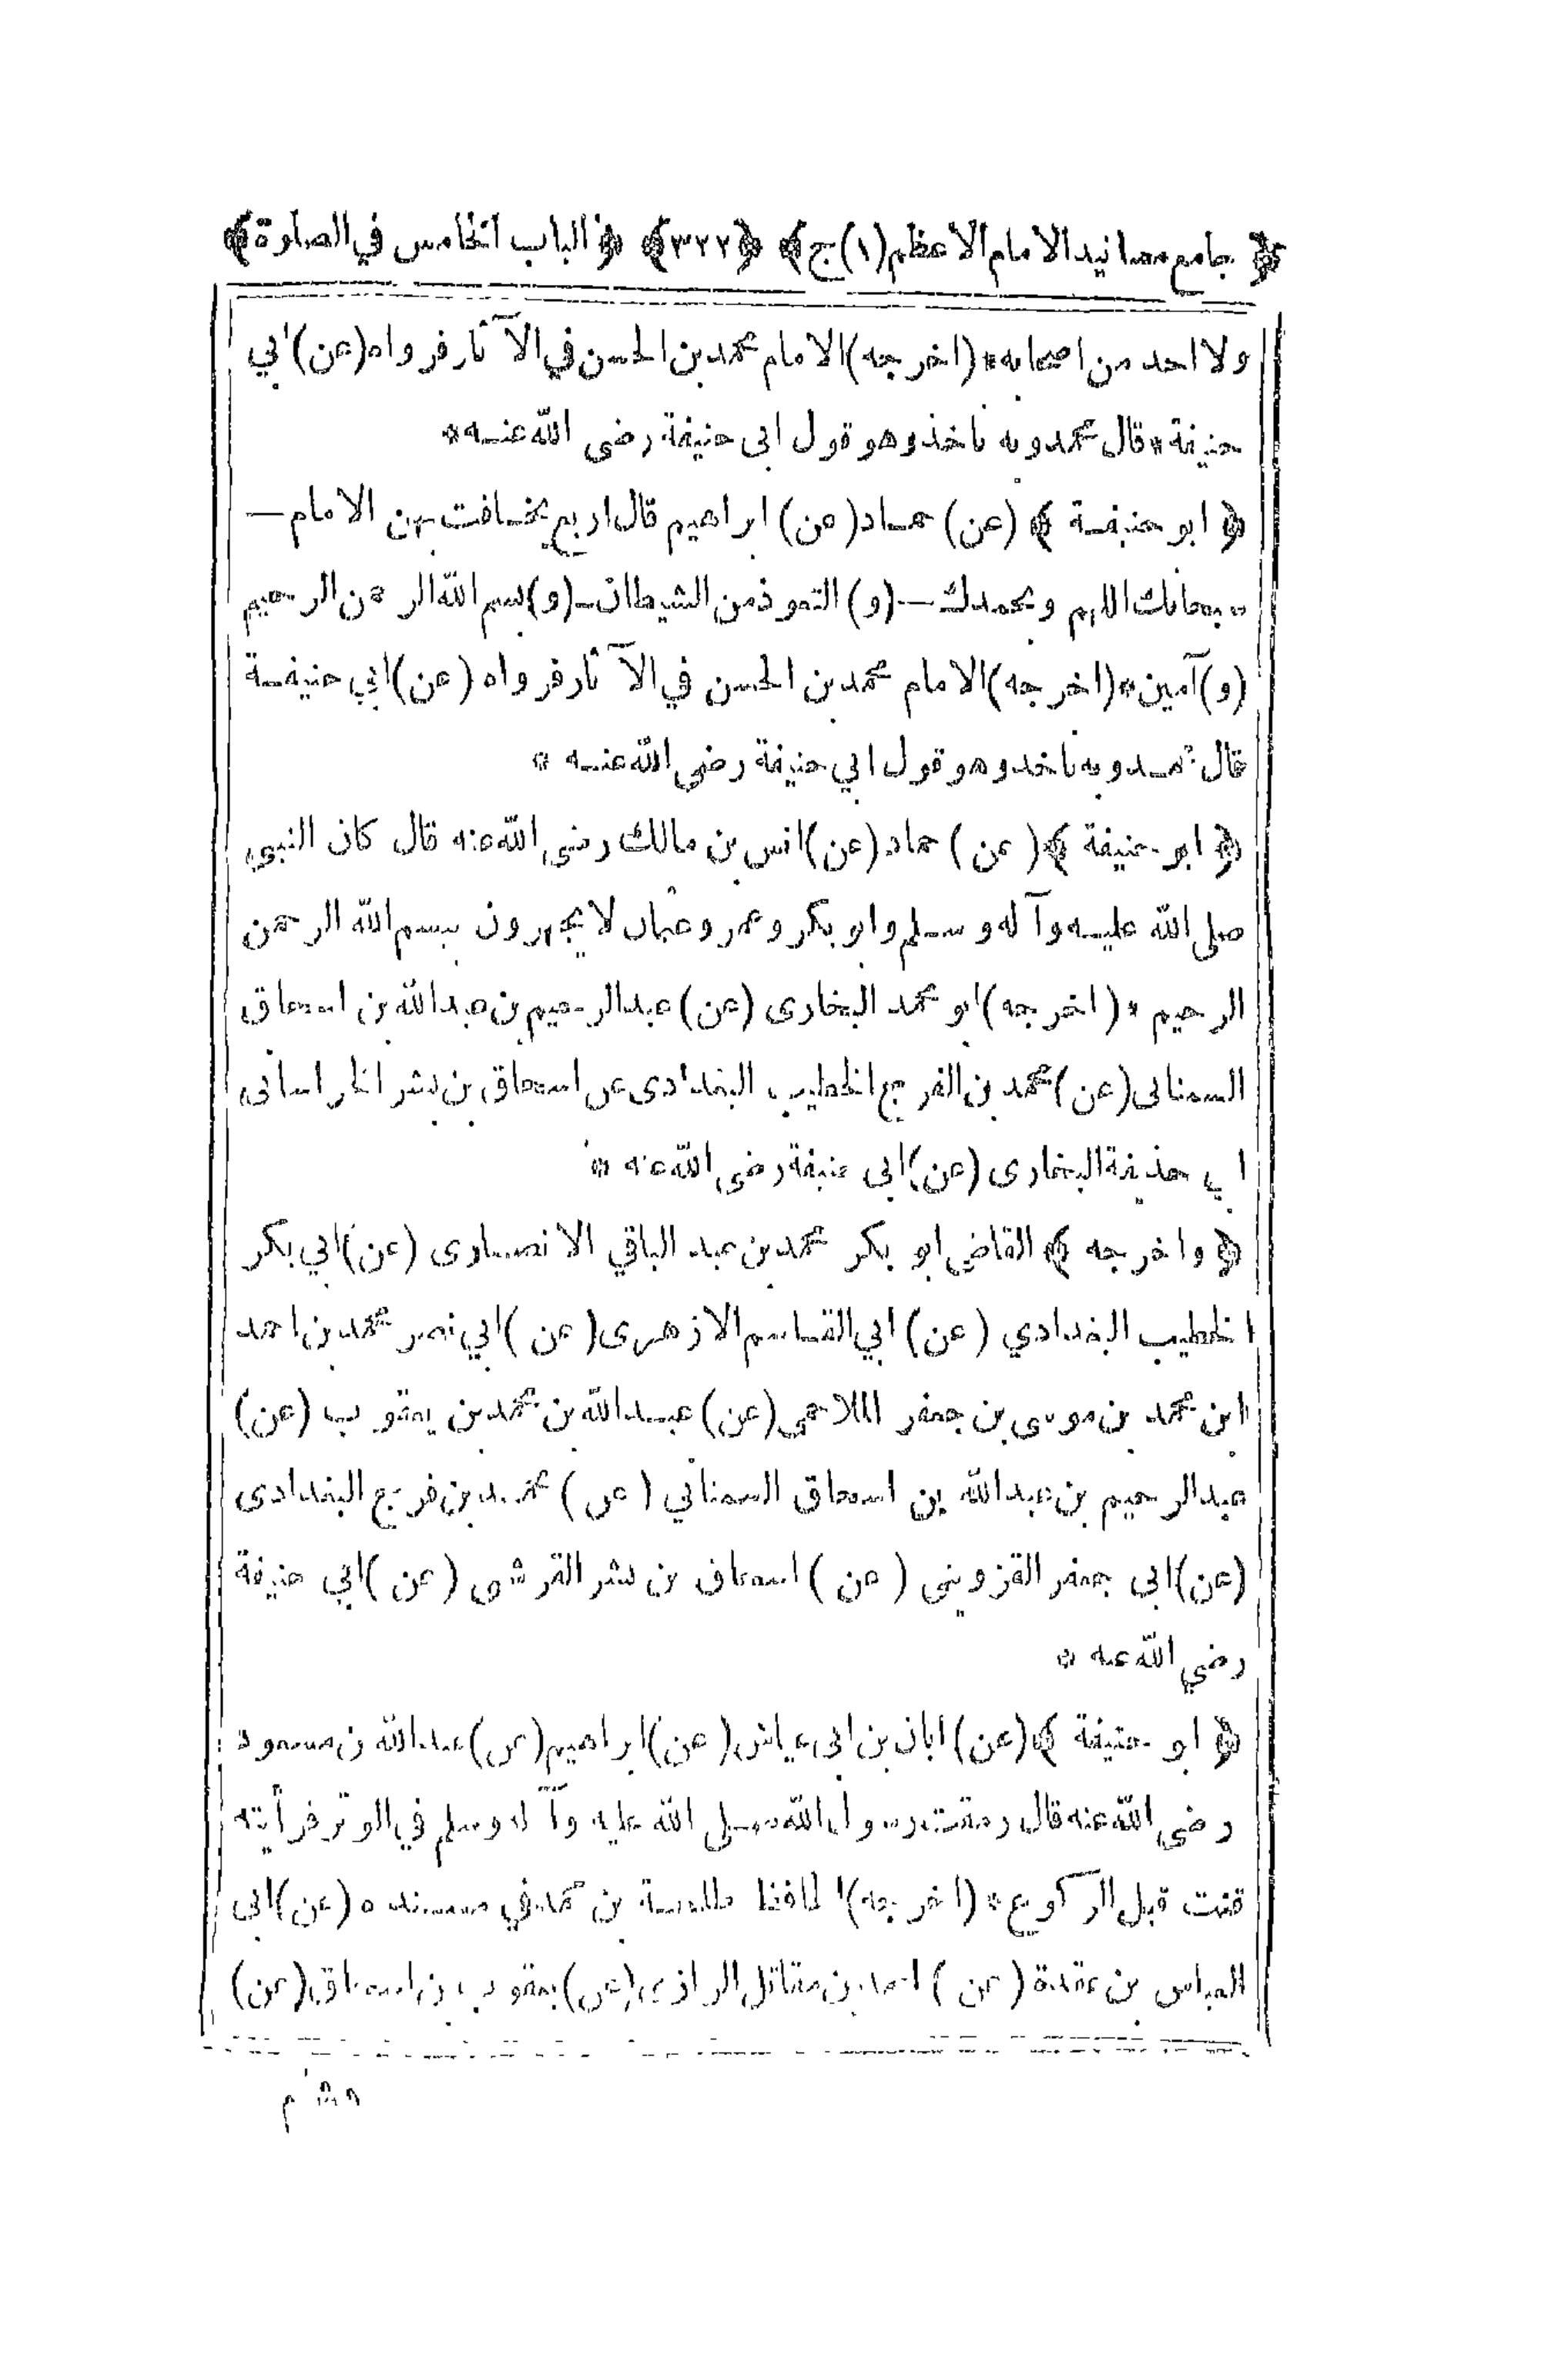 ﴿ جامع مسانيد الامام الاعظم (١) ج ﴾ ﴿٣٢٢﴾ ﴿ الباب الخامس في الصلوة ﴾
ولا احد من اصحابه * (اخرجه) الامام محمد بن الحسن في الآثار فرواه (عن) ابي
حنيفة * قال محمد وبه ناخذ وهو قول ابى حنيفة رضى الله عنه *
﴿ ابو حنيفة ﴾ (عن) حماد (عن) ابراهيم قال اربع يخافت بهن الامام —
سبحانك اللهم وبحمدك — (و) التعوذ من الشيطان — (و) بسم الله الرحمن الرحيم
(و) آمين * (اخرجه) الامام محمد بن الحسن في الآثار فرواه (عن) ابي حنيفة
قال محمد وبه ناخذ وهو قول ابي حنيفة رضي الله عنه *
﴿ ابو حنيفة ﴾ (عن) حماد (عن) انس بن مالك رضي الله عنه قال كان النبي
صلى الله عليه وآله وسلم وابو بكر وعمر وعثمان لا يجهرون ببسم الله الرحمن
الرحيم * (اخرجه) ابو محمد البخارى (عن) عبد الرحيم بن عبد الله بن اسحاق
السمنانى (عن) محمد بن الفرج الخطيب البغدادى عن اسحاق بن بشر الخراسانى
ابي حذيفة البخارى (عن) ابى حنيفة رضى الله عنه *
﴿ واخرجه ﴾ القاضي ابو بكر محمد بن عبد الباقي الانصارى (عن) ابي بكر
الخطيب البغدادي (عن) ابي القاسم الازهرى (عن) ابي نصر محمد بن احمد
ابن محمد بن موسى بن جعفر الملاحمى (عن) عبد الله بن محمد بن يعقوب (عن)
عبد الرحيم بن عبد الله بن اسحاق السمناني (عن) محمد بن فرج البغدادى
(عن) ابى جعفر القزوينى (عن) اسحاق بن بشر القرشى (عن) ابي حنيفة
رضي الله عنه *
﴿ ابو حنيفة ﴾ (عن) ابان بن ابى عياش (عن) ابراهيم (عن) عبد الله بن مسعود
رضى الله عنه قال رمقت رسول الله صلى الله عليه وآله وسلم في الوتر فرأيته
قنت قبل الركوع * (اخرجه) الحافظ طلحة بن محمد في مسنده (عن) ابى
العباس بن عقدة (عن) احمد بن مقاتل الرازي (عن) يعقوب بن اسحاق (عن)